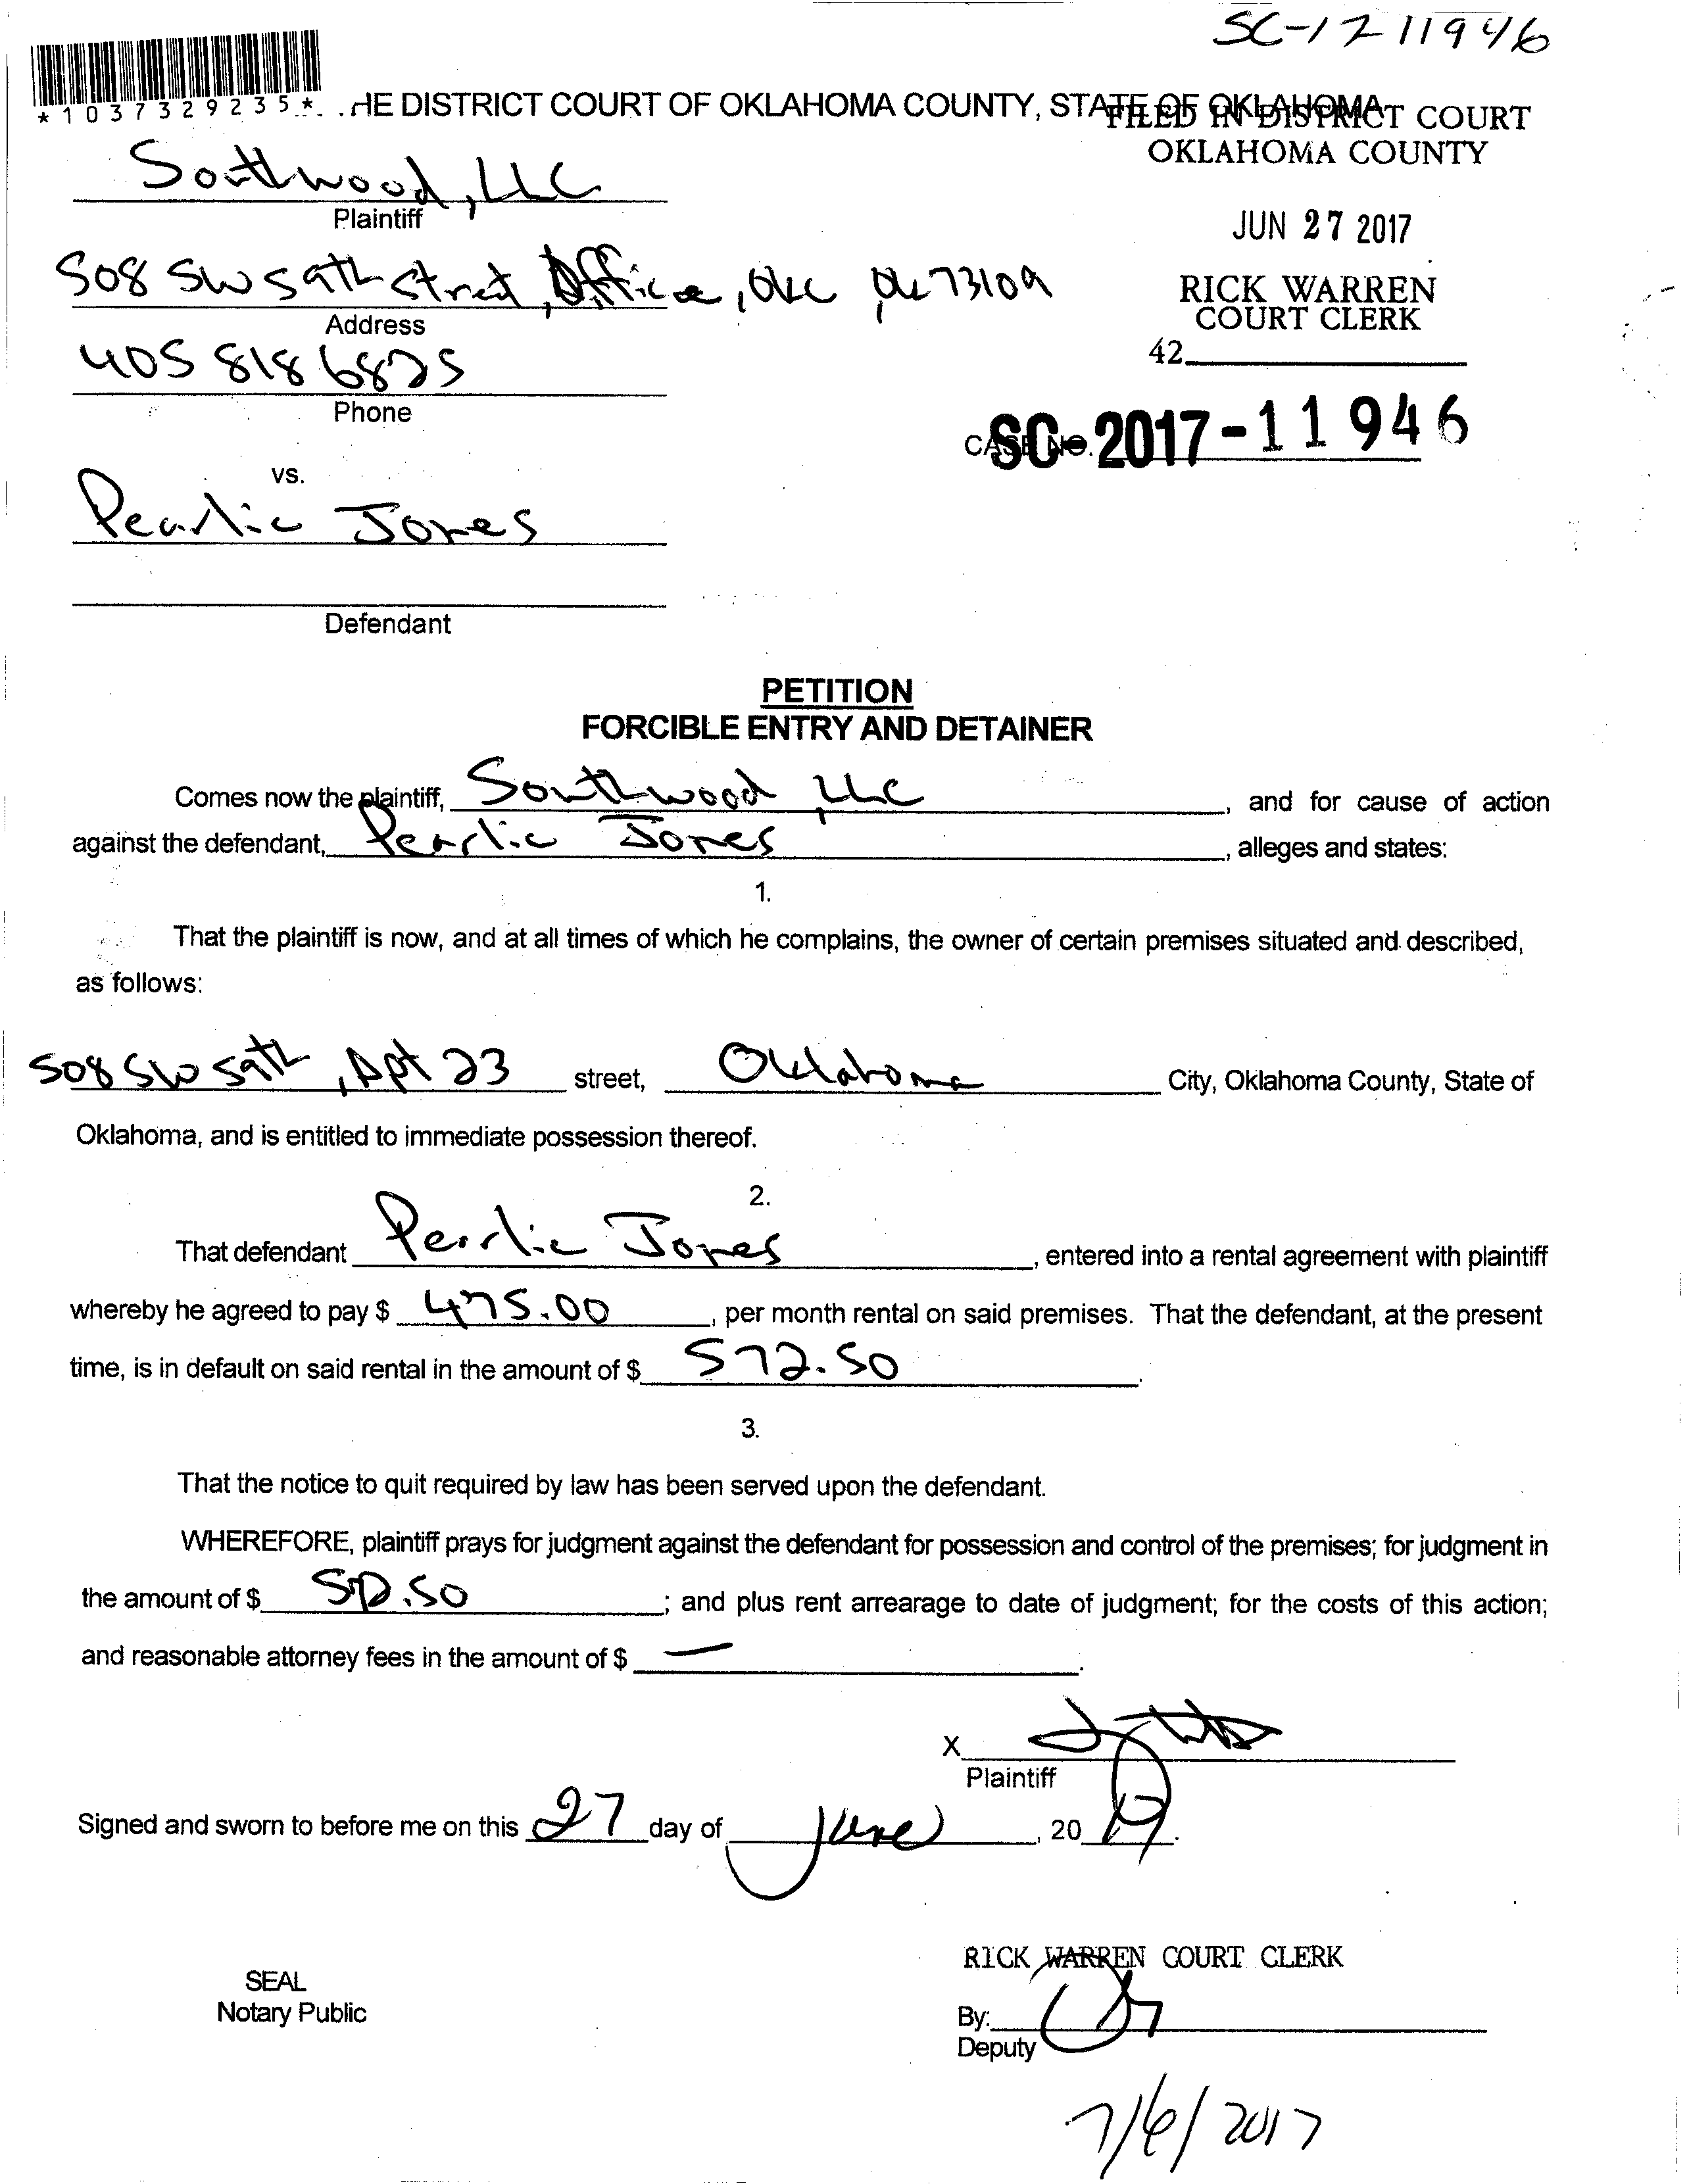 SC-17 11946
*1037329235*
HE DISTRICT COURT OF OKLAHOMA COUNTY, STATE OF OKLAHOMA
FILED IN DISTRICT COURT
OKLAHOMA COUNTY
Southwood, LLC
Plaintiff
JUN 27 2017
508 SW 59th Street, Office, OKC OK 73109
Address
RICK WARREN
COURT CLERK
42
405 818 6825
Phone
CASE NO. SC-2017-11946
vs.
Pearlie Jones
Defendant
PETITION
FORCIBLE ENTRY AND DETAINER
Comes now the plaintiff, Southwood, LLC, and for cause of action
against the defendant, Pearlie Jones, alleges and states:
1.
That the plaintiff is now, and at all times of which he complains, the owner of certain premises situated and described,
as follows:
508 SW 59th, Apt 23 street, Oklahoma City, Oklahoma County, State of
Oklahoma, and is entitled to immediate possession thereof.
2.
That defendant Pearlie Jones, entered into a rental agreement with plaintiff
whereby he agreed to pay $ 475.00, per month rental on said premises. That the defendant, at the present
time, is in default on said rental in the amount of $ 572.50.
3.
That the notice to quit required by law has been served upon the defendant.
WHEREFORE, plaintiff prays for judgment against the defendant for possession and control of the premises; for judgment in
the amount of $ 572.50; and plus rent arrearage to date of judgment; for the costs of this action;
and reasonable attorney fees in the amount of $ —.
X
Plaintiff
Signed and sworn to before me on this 27 day of June, 20 17.
RICK WARREN COURT CLERK
SEAL
Notary Public
By:
Deputy
7/6/2017